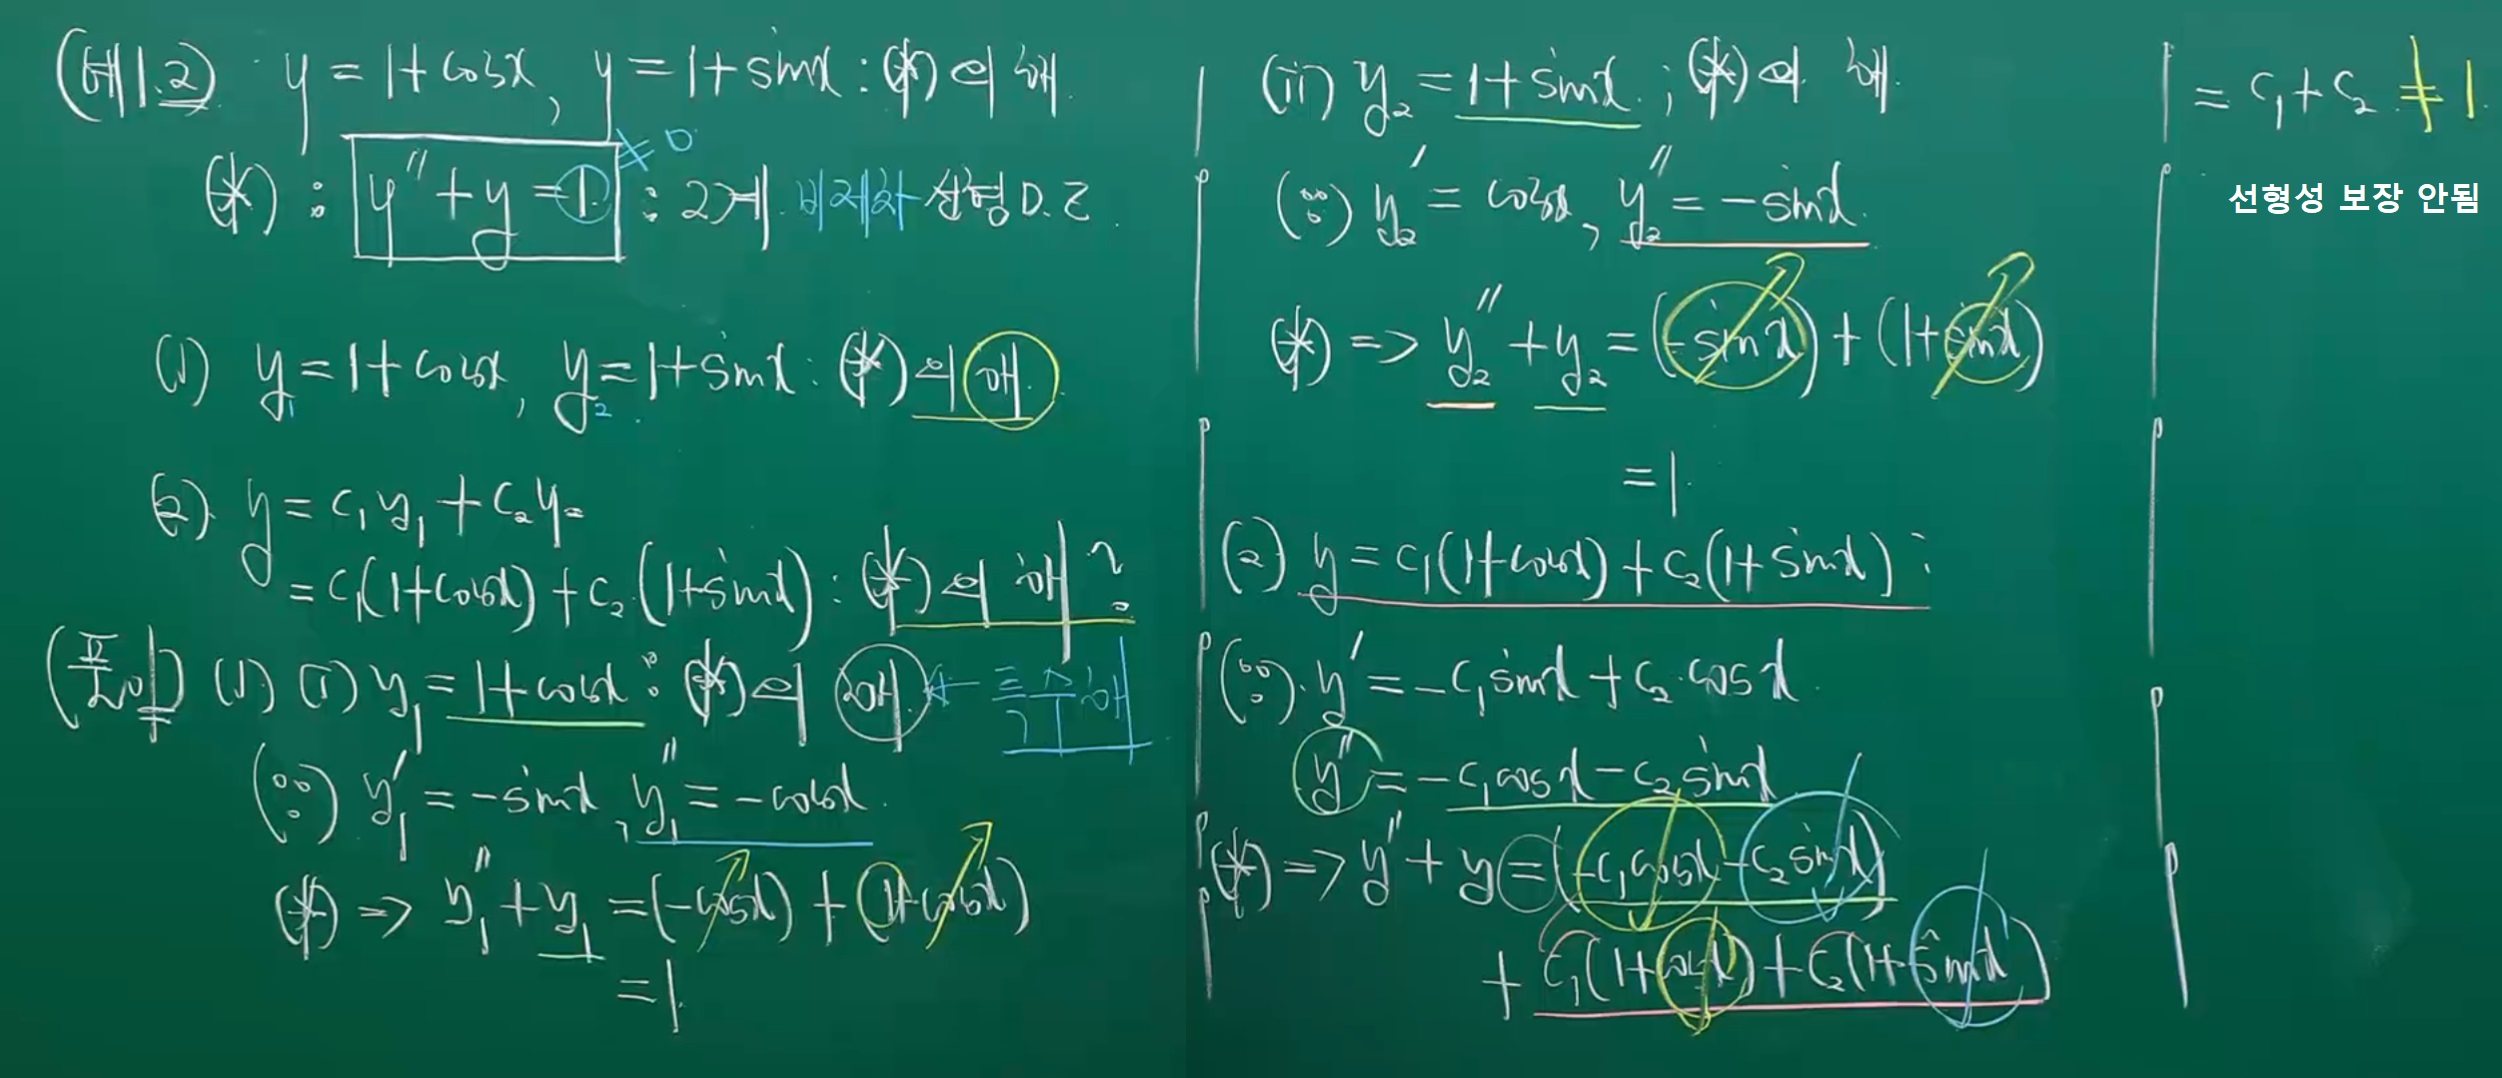 (예1.2) y = 1+cosx, y = 1+sinx : (*)의 해.
(*) : y'' + y = 1. ≠ 0 : 2계 비제차 선형 D.E.
(1) y₁ = 1+cosx, y₂ = 1+sinx : (*)의 해.
(2) y = c₁y₁ + c₂y₂
= c₁(1+cosx) + c₂(1+sinx) : (*)의 해?
(풀이) (1) (i) y₁ = 1+cosx : (*)의 해. ← 특수해
(∵) y₁' = -sinx, y₁'' = -cosx.
(*) => y₁'' + y₁ = (-cosx) + (1+cosx)
= 1.
(ii) y₂ = 1+sinx. ; (*)의 해.
(∵) y₂' = cosx, y₂'' = -sinx.
(*) => y₂'' + y₂ = (-sinx) + (1+sinx)
= 1.
(2) y = c₁(1+cosx) + c₂(1+sinx) :
(∵). y' = -c₁sinx + c₂·cosx.
y'' = -c₁cosx - c₂sinx
(*) => y'' + y = (-c₁cosx - c₂sinx)
+ c₁(1+cosx) + c₂(1+sinx)
= c₁+c₂ ≠ 1.
선형성 보장 안됨